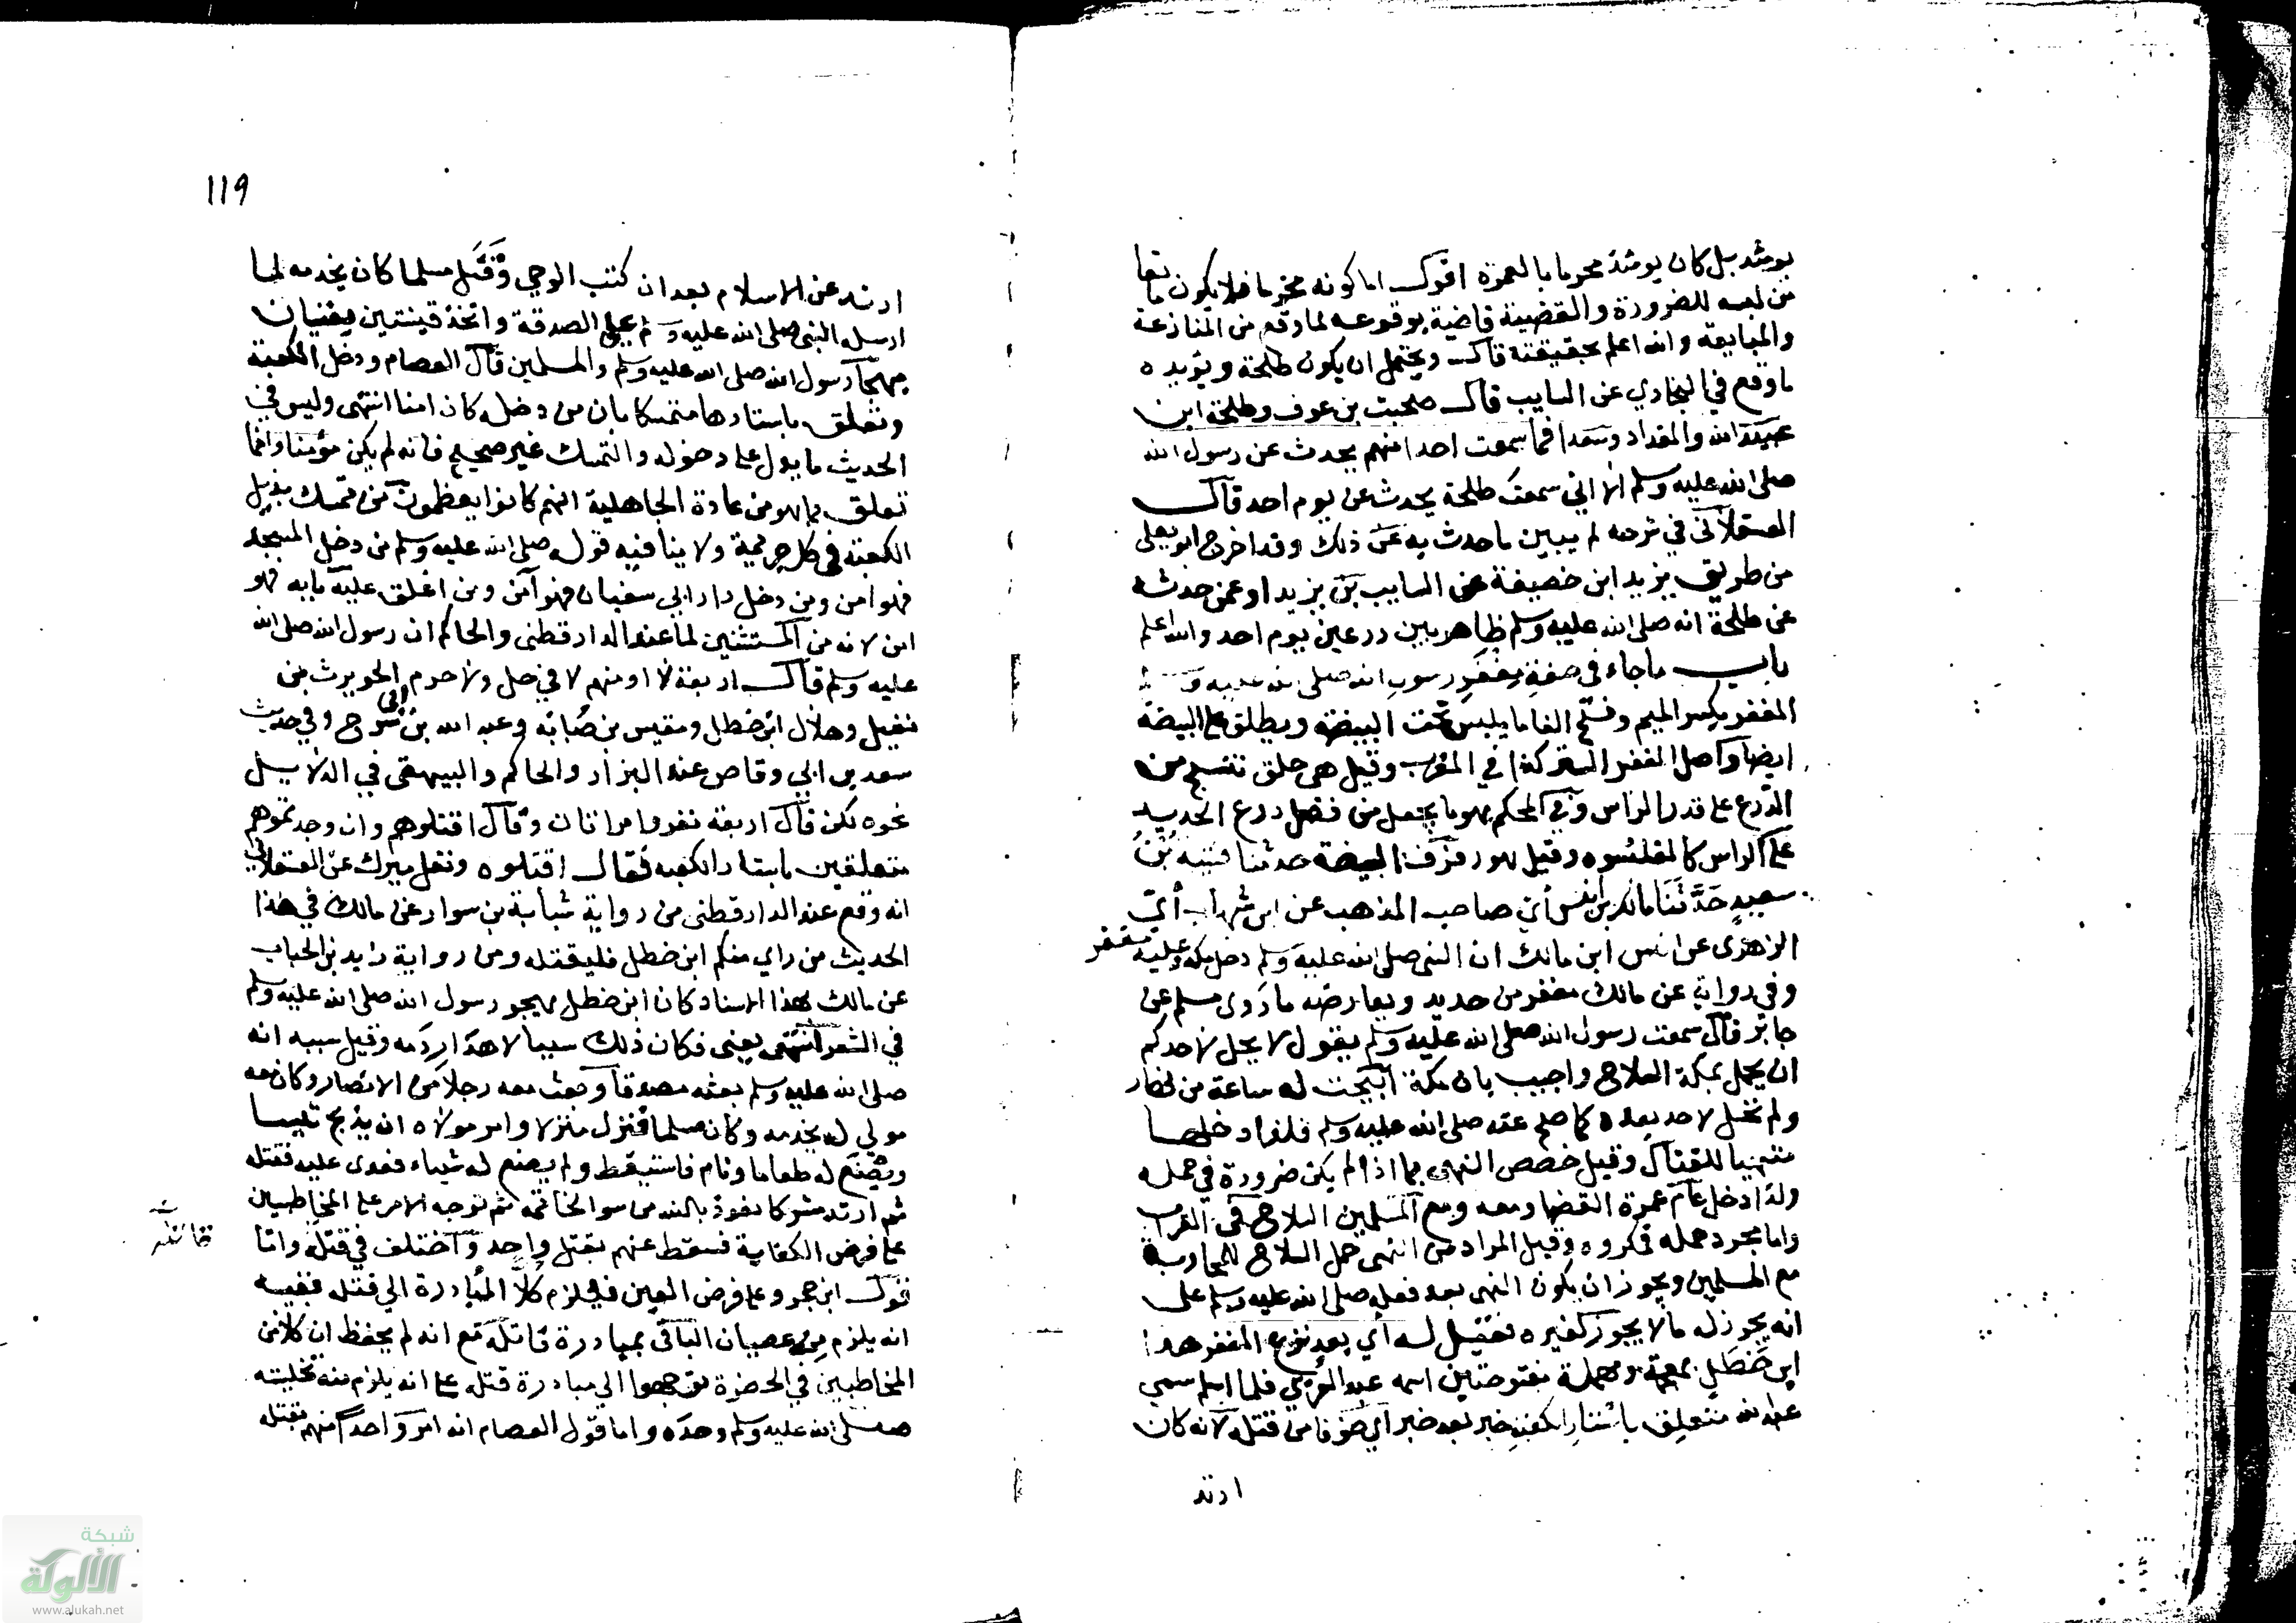 يومئذ بل كان يومئذ محرما بالعمرة اقول اما كونه محرما فلا يكون مانعا
من لبسه للضرورة والقضية قاضية بوقوعه لما وقع من المنازعة
والمبايعة والله اعلم بحقيقته قال ويحتمل ان يكون طلحة ويؤيده
ما وقع في البخاري عن السايب قال صحبت بن عوف وطلحة ابن
عبيد الله والمقداد وسعدا فما سمعت احدا منهم يحدث عن رسول الله
صلى الله عليه وسلم الا اني سمعت طلحة يحدث عن يوم احد قال
العسقلاني في شرحه لم يبين ما حدث به عن ذلك وقد اخرج ابو يعلى
من طريق يزيد ابن خصيفة عن السايب بن يزيد او عمن حدثه
عن طلحة انه صلى الله عليه وسلم ظاهر بين درعين يوم احد والله اعلم
باب ما جاء في صفة مغفر رسول الله صلى الله عليه وسلم
المغفر بكسر الميم وفتح الفا ما يلبس تحت البيضة ويطلق على البيضة
ايضا واصل المغفر الستر كذا في المغرب وقيل هي حلق تنسج من
الدرع على قدر الراس وفي المحكم هو ما يجعل من فضل درع الحديد
على الراس كالقلنسوه وقيل هو رفرف البيضة حدثنا قتيبة بن
سعيد حدثنا مالك بن انس أي صاحب المذهب عن ابن شهاب أي
الزهري عن انس ابن مالك ان النبي صلى الله عليه وسلم دخل مكة وعليه مغفر
وفي رواية عن مالك مغفر من حديد ويعارضه ما روى مسلم عن
جابر قال سمعت رسول الله صلى الله عليه وسلم يقول لا يحل لاحدكم
ان يحمل بمكة السلاح واجيب بان مكة ابيحت له ساعة من نهار
ولم تحل لاحد بعده كما صح عنه صلى الله عليه وسلم فلهذا دخلها
متهيبا للقتال وقيل خصص النهي بما اذا لم يكن ضرورة في حمله
ولذا دخل عام عمرة القضا ومعه ومع المسلمين السلاح في القراب
واما مجرد حمله فمكروه وقيل المراد من النهي حمل السلاح للمحاربة
مع المسلمين ويجوز ان يكون النهي بعد فعله صلى الله عليه وسلم على
انه يجوز له ما لا يجوز لغيره فقيل له أي بعد نزع المغفر هذا
ابن خطل بمعجمة ومهملة مفتوحتين اسمه عبد العزى فلما اسلم سمي
عبد الله متعلق باستار الكعبة خبر بعد خبر أي خوفا من قتله لانه كان
ارتد
119
ارتد عن الاسلام بعد ان كتب الوحي وقتل مسلما كان يخدمه لما
ارسله النبي صلى الله عليه وسلم على الصدقة واتخذ قينتين يغنيان
بهجا رسول الله صلى الله عليه وسلم والمسلمين قال العصام ودخل الكعبة
وتعلق باستارها متمسكا بان من دخل كان امنا انتهى وليس في
الحديث ما يدل على دخوله والتمسك غير صحيح فانه لم يكن مؤمنا وانما
تعلق بما هو من عادة الجاهلية انهم كانوا يعظمون من تمسك بذيل
الكعبة في كل جريمة ولا ينافيه قوله صلى الله عليه وسلم من دخل المسجد
فهو امن ومن دخل دار ابي سفيان فهو آمن ومن اغلق عليه بابه فهو
امن لانه من المستثنين لما عند الدارقطني والحاكم ان رسول الله صلى الله
عليه وسلم قال اربعة لا اومنهم لا في حل ولا حرم الحويرث بن
نفيل وهلال ابن خطل ومقيس بن صبابه وعبد الله بن ابي سرح وفي حديث
سعد بن ابي وقاص عند البزار والحاكم والبيهقي في الدلايل
نحوه لكن قال اربعة نفر وامراتان وقال اقتلوهم وان وجدتموهم
متعلقين باستار الكعبه فقال اقتلوه ونقل ميرك عن العسقلاني
انه وقع عند الدارقطني من رواية شبابة بن سوار عن مالك في هذا
الحديث من راي منكم ابن خطل فليقتله ومن رواية زايد بن الحباب
عن مالك بهذا الاسناد كان ابن خطل يهجو رسول الله صلى الله عليه وسلم
في الشعر انتهى يعني فكان ذلك سببا لاهدار دمه وقيل سببه انه
صلى الله عليه وسلم بعثه مصدقا وبعث معه رجلا من الانصار وكان معه
مولى له يخدمه وكان مسلما فنزل منزلا وامر مولاه ان يذبح تيسا
ويصنع له طعاما ونام فاستيقظ ولم يصنع له شياء فعدى عليه فقتله
ثم ارتد مشركا نعوذ بالله من سوالخاتمه ثم توجه الامر على المخاطبين
على فرض الكفاية فسقط عنهم بقتل واحد واختلف في قتله واما
قاتله
قول ابن حجر وعلى فرض العين فيلزم كلا المبادرة الى قتله ففيه
انه يلزم منه عصيان الباقي بمبادرة قاتله مع انه لم يحفظ ان كلا من
المخاطبين في الحضرة توجهوا الى مبادرة قتله على انه يلزم منه تخليته
صلى الله عليه وسلم وحده واما قول العصام انه امر واحدا منهم بقتله
شبكة
الألوكة
www.alukah.net